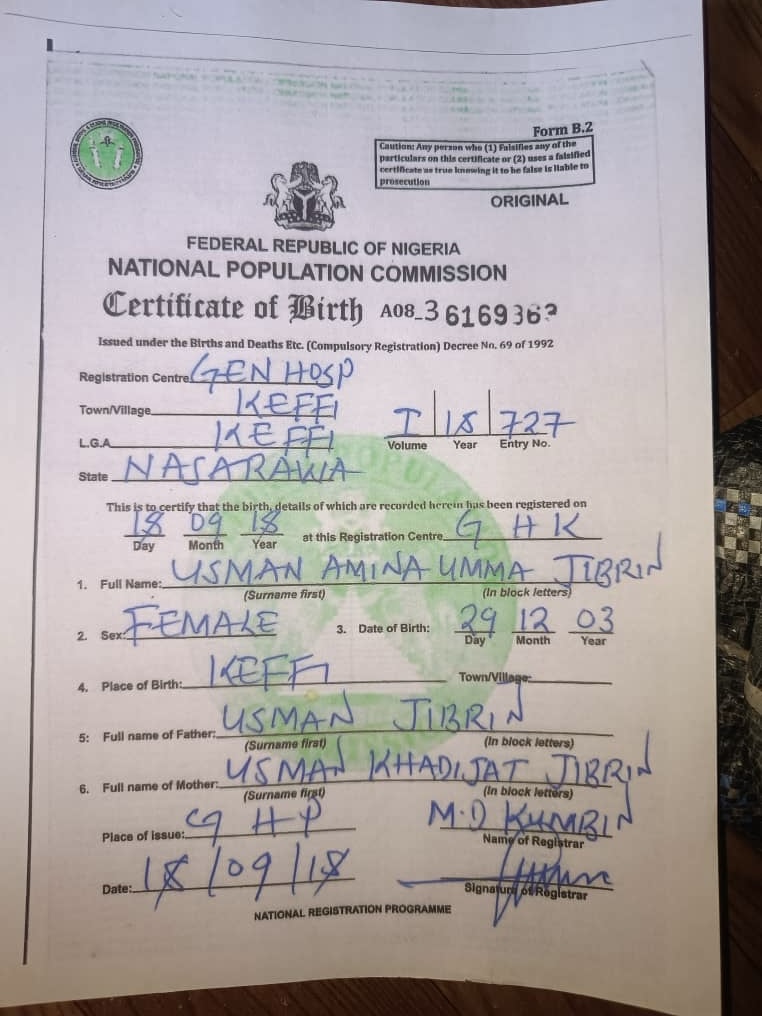 Form B.2
Caution: Any person who (1) Falsifies any of the
particulars on this certificate or (2) uses a falsified
certificate as true knowing it to be false is liable to
prosecution
ORIGINAL
FEDERAL REPUBLIC OF NIGERIA
NATIONAL POPULATION COMMISSION
Certificate of Birth A08_3 616936
Issued under the Births and Deaths Etc. (Compulsory Registration) Decree No. 69 of 1992
Registration Centre GEN HOSP
Town/Village KEFFI
L.G.A KEFFI
I 18 727
Volume Year Entry No.
State NASARAWA
This is to certify that the birth, details of which are recorded herein has been registered on
18 09 18 at this Registration Centre G H K
Day Month Year
1. Full Name: USMAN AMINA UMMA JIBRIN
(Surname first) (In block letters)
2. Sex: FEMALE 3. Date of Birth: 29 12 03
Day Month Year
4. Place of Birth: KEFFI Town/Village:
5: Full name of Father: USMAN JIBRIN
(Surname first) (In block letters)
6. Full name of Mother: USMAN KHADIJAT JIBRIN
(Surname first) (In block letters)
Place of Issue: G H M.D KUMBIN
Name of Registrar
Date: 18/09/18
Signature of Registrar
NATIONAL REGISTRATION PROGRAMME